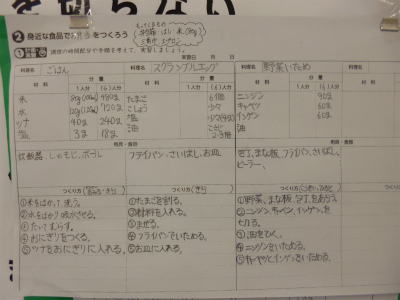 を破らない
もってくるもの
弁当箱 はし 米(80g)
三角巾 エプロン
❷ 身近な食品でおかずをつくろう
実習日
料理名 ごはん
料理名 スクランブルエッグ
料理名 野菜いため
分量
1人分 (6)人分
米 480g
水 120g 720g
ツナ 40 240
塩 3 18g
たまご 6個
こしょう 少々
塩
油
ニンジン 90g
キャベツ 60g
インゲン 60g
油
用具・食器
炊飯器、しゃもじ、ボール
フライパン、さいばし、お皿
包丁、まな板、フライパン、さいばし、
ピーラー、
つくり方
①米をはかって洗う。
②水をはかり吸水させる。
③たいてむらす。
④おにぎりをつくる。
⑤ツナをおにぎりに入れる。
①たまごを割る。
②材料を入れる。
③まぜる。
④フライパンでいためる。
⑤お皿に入れる。
①野菜、まな板、包丁をあらう。
②ニンジン、キャベツ、インゲンを
切る。
③油をひく。
④ニンジンをいためる。
⑤キャベツとインゲンをいためる。